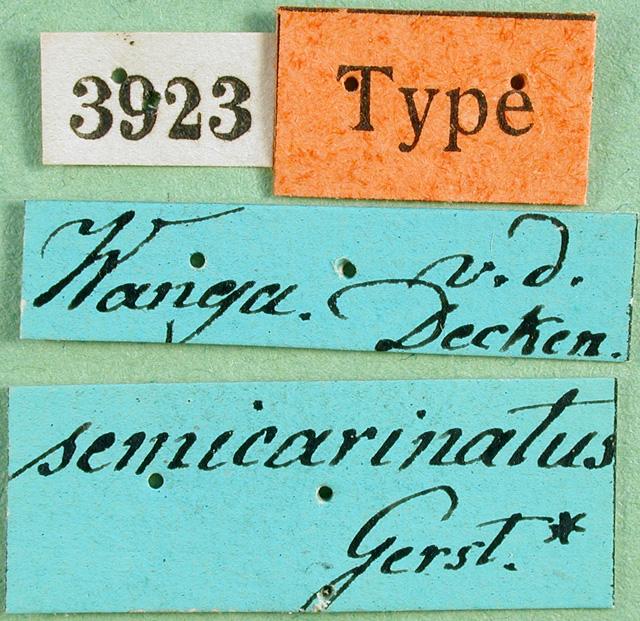 3923
Type
Wanga. v. d.
Decken.
semicarinatus
Gerst.*